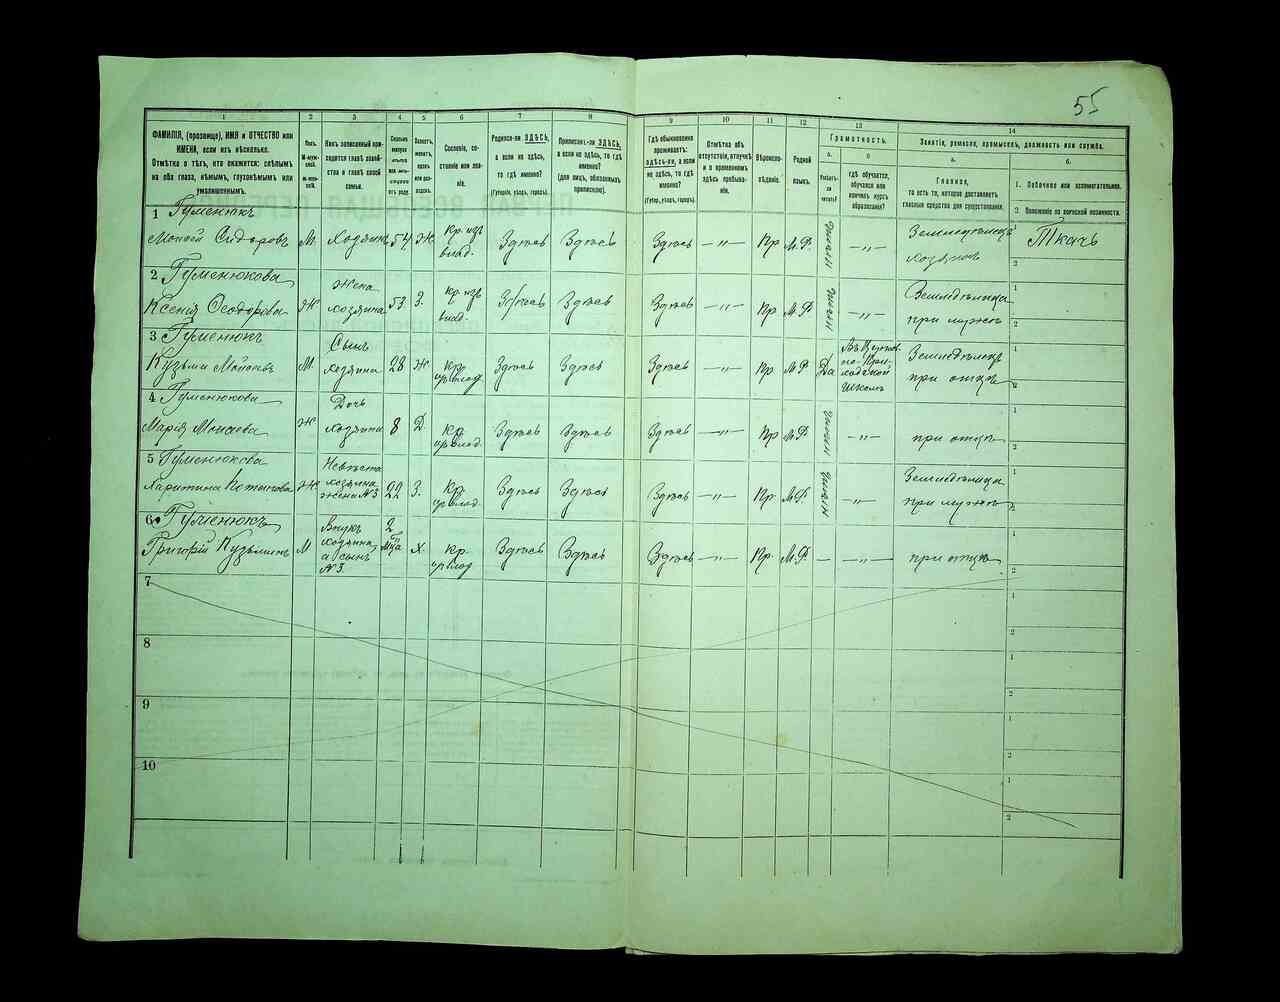 55
1 2 3 4 5 6 7 8 9 10 11 12 13 14
ФАМИЛІЯ, (прозвище), ИМЯ и ОТЧЕСТВО или
ИМЕНА, если ихъ нѣсколько.
Отмѣтка о тѣхъ, кто окажется: слѣпымъ
на оба глаза, нѣмымъ, глухонѣмымъ или
умалишеннымъ.
Полъ.
М-муж-
ской.
Ж-жен-
скій.
Какъ записанный при-
ходится главѣ хозяй-
ства и главѣ своей
семьи.
Сколько
минуло
лѣтъ
или мѣся-
цевъ
отъ роду.
Холостъ,
женатъ,
вдовъ
или раз-
веденъ.
Сословіе, со-
стояніе или зва-
ніе.
Родился-ли ЗДѢСЬ,
а если не здѣсь,
то гдѣ именно?
(Губернія, уѣздъ, городъ).
Приписанъ-ли ЗДѢСЬ,
а если не здѣсь, то гдѣ
именно?
(для лицъ, обязанныхъ
припискою).
Гдѣ обыкновенно
проживаетъ:
здѣсь-ли, а если
не здѣсь, то гдѣ
именно?
(Губер., уѣздъ, городъ).
Отмѣтка объ
отсутствіи, отлучкѣ
и о временномъ
здѣсь пребыва-
ніи.
Вѣроиспо-
вѣданіе.
Родной
языкъ.
Грамотность.
а.
Умѣетъ-
ли
читать?
б.
гдѣ обучается,
обучался или
кончилъ курсъ
образованія?
Занятіе, ремесло, промыселъ, должность или служба.
а.
Главное,
то есть то, которое доставляетъ
главныя средства для существованія.
б.
1. Побочное или вспомогательное.
2. Положеніе по воинской повинности.
1 Гуменюкъ
Моисей Сидоровъ М. Хозяинъ 54 Ж. Кр. изъ влад. Здѣсь Здѣсь Здѣсь —„— Пр М.Р. —„— Земледѣлецъ хозяинъ 1 Ткачъ
2
2 Гуменюкова
Ксенія Ѳеодорова Ж Жена хозяина 53 З. Кр. изъ влад. Здѣсь Здѣсь Здѣсь —„— Пр. М.Р —„— Земледѣлица при мужѣ 1
2
3 Гуменюкъ
Кузьма Моисеевъ М. Сынъ хозяина 28 Ж Кр. Здѣсь Здѣсь Здѣсь —„— Пр М.Р Да школѣ Земледѣлецъ при отцѣ 1
2
4 Гуменюкова
Марія Моисеева Ж Дочь хозяина 8 Д Кр. Здѣсь Здѣсь Здѣсь —„— Пр М.Р —„— при отцѣ 1
2
5 Гуменюкова
Харитина Ж Невѣста хозяина, жена №3 22 З. Кр. Здѣсь Здѣсь Здѣсь —„— Пр. М.Р —„— Земледѣлица при мужѣ 1
2
6 Гуменюкъ
Григорій Кузьминъ М Внукъ хозяина, а сынъ №3. 2 мца Х. Кр. Здѣсь Здѣсь Здѣсь —„— Пр. М.Р. — —„— при отцѣ 1
2
7 1
2
8 1
2
9 1
2
10 1
2